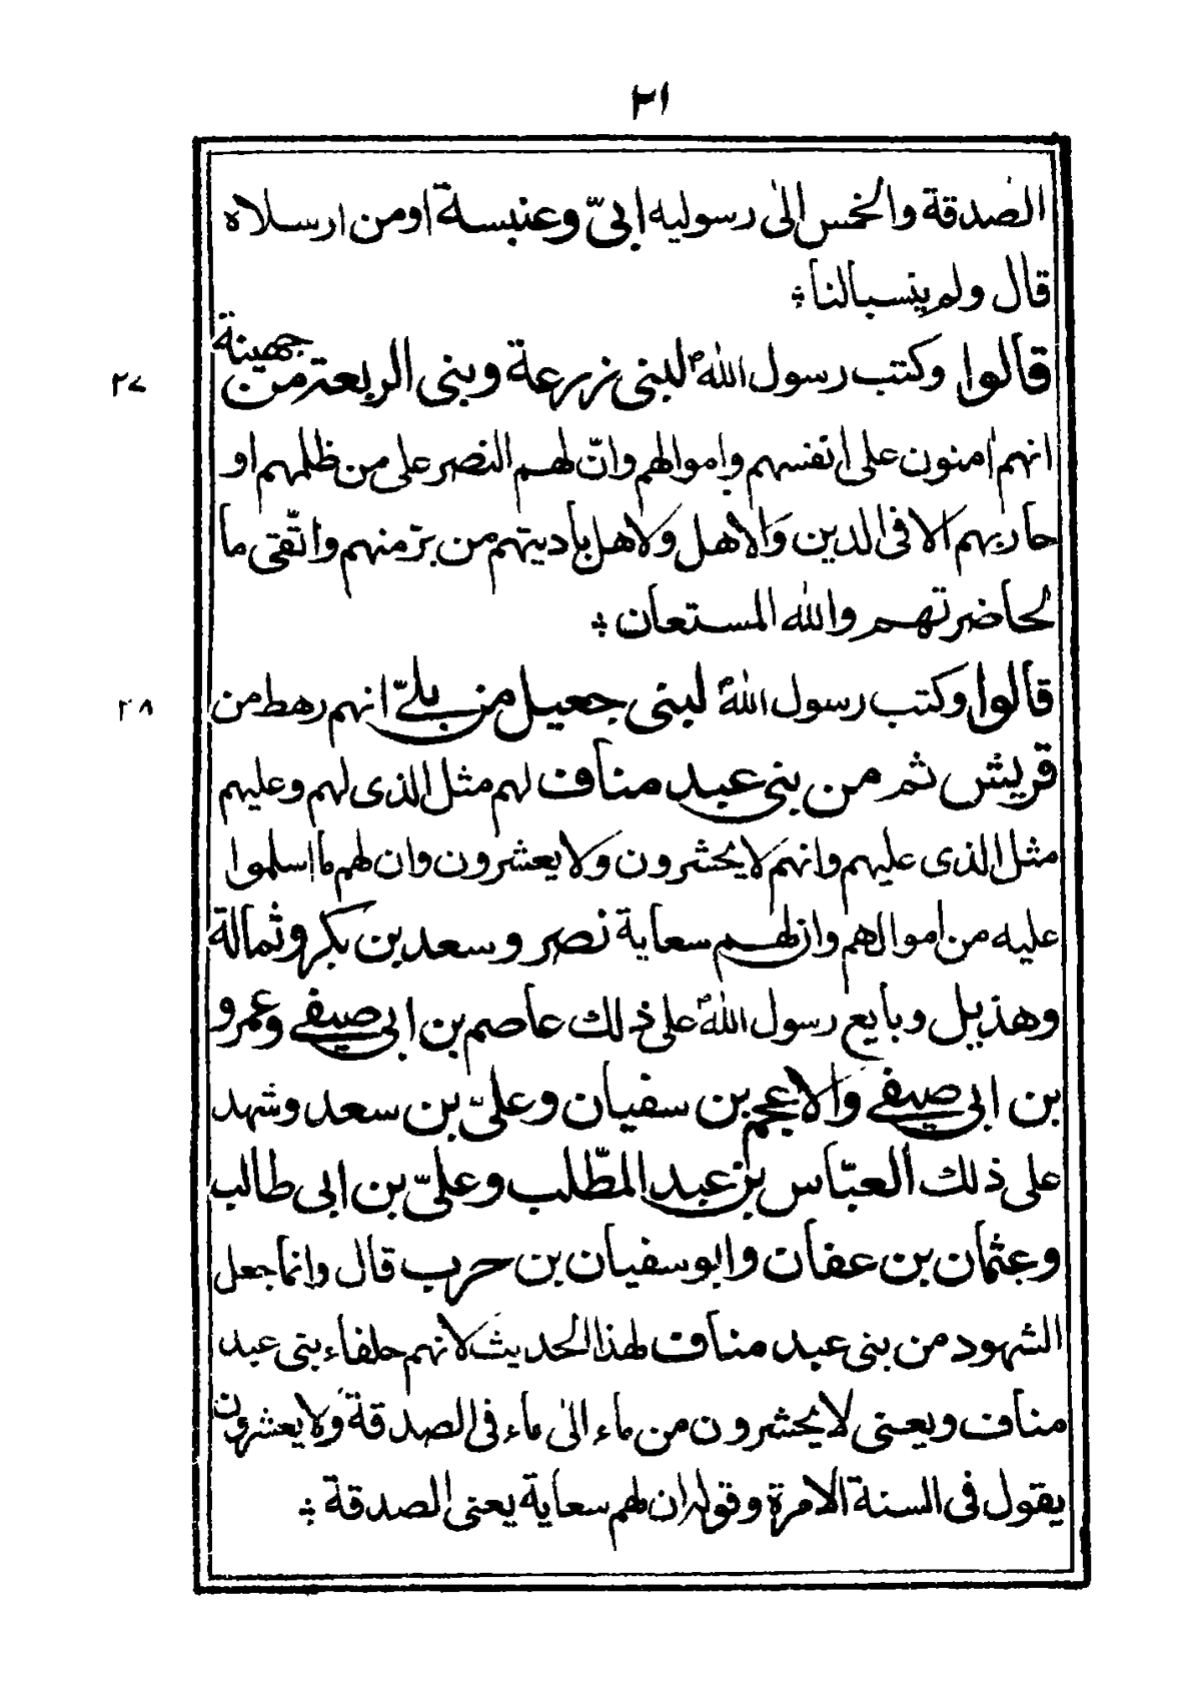 ٢١
الصدقة والخمس الى رسوليه ابىّ وعنبسة اومن ارسلاه
قال ولم ينسبا لنا
قالوا وكتب رسول الله لبنى زرعة وبنى الربعة من جهينة
٢٧
انهم امنون على انفسهم واموالهم وانّ لهم النصر على من ظلمهم او
حاربهم الا فى الدين والاهل ولاهل باديتهم من برّ منهم واتّقى ما
لحاضرتهم والله المستعان
قالوا وكتب رسول الله لبنى جعيل من بلىّ انهم رهط من
٢٨
قريش ثم من بنى عبد مناف لهم مثل الذى لهم وعليهم
مثل الذى عليهم وانهم لا يحشرون ولا يعشرون وان لهم ما اسلموا
عليه من اموالهم وان لهم سعاية نصر وسعد بن بكر وثمالة
وهذيل وبايع رسول الله على ذلك عاصم بن ابى صيفى وعمرو
بن ابى صيفى والاعجم بن سفيان وعلىّ بن سعد وشهد
على ذلك العبّاس بن عبد المطّلب وعلىّ بن ابى طالب
وعثمان بن عفان وابو سفيان بن حرب قال وانما جعل
الشهود من بنى عبد مناف لهذا الحديث لانهم حلفاء بنى عبد
مناف ويعنى لا يحشرون من ماء الى ماء فى الصدقة ولا يعشرون
يقول فى السنة الا مرة وقوله ان لهم سعاية يعنى الصدقة